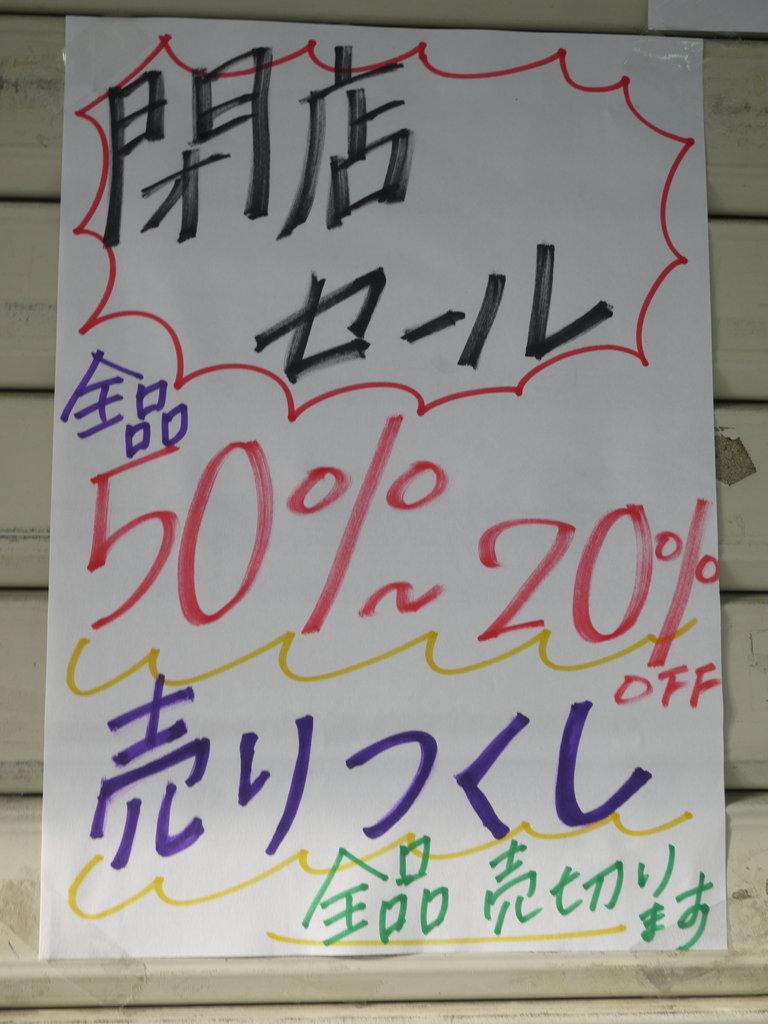 閉店
セール
全品
50%~20%
OFF
売りつくし
全品 売切ります